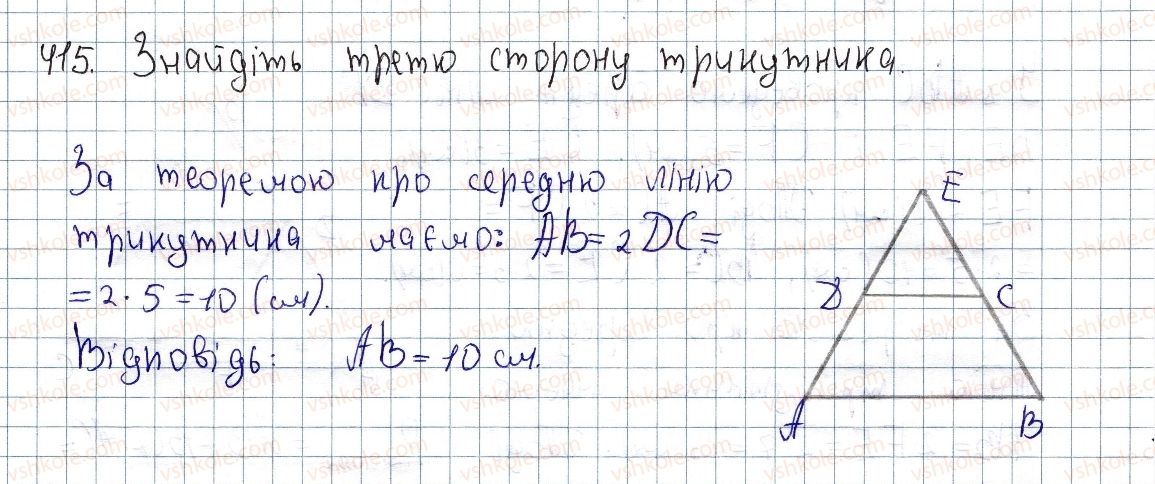 415. Знайдіть третю сторону трикутника.
За теоремою про середню лінію
трикутника маємо: AB = 2DC =
= 2 · 5 = 10 (см).
Відповідь: AB = 10 см.
E
D C
A B
vshkole.com